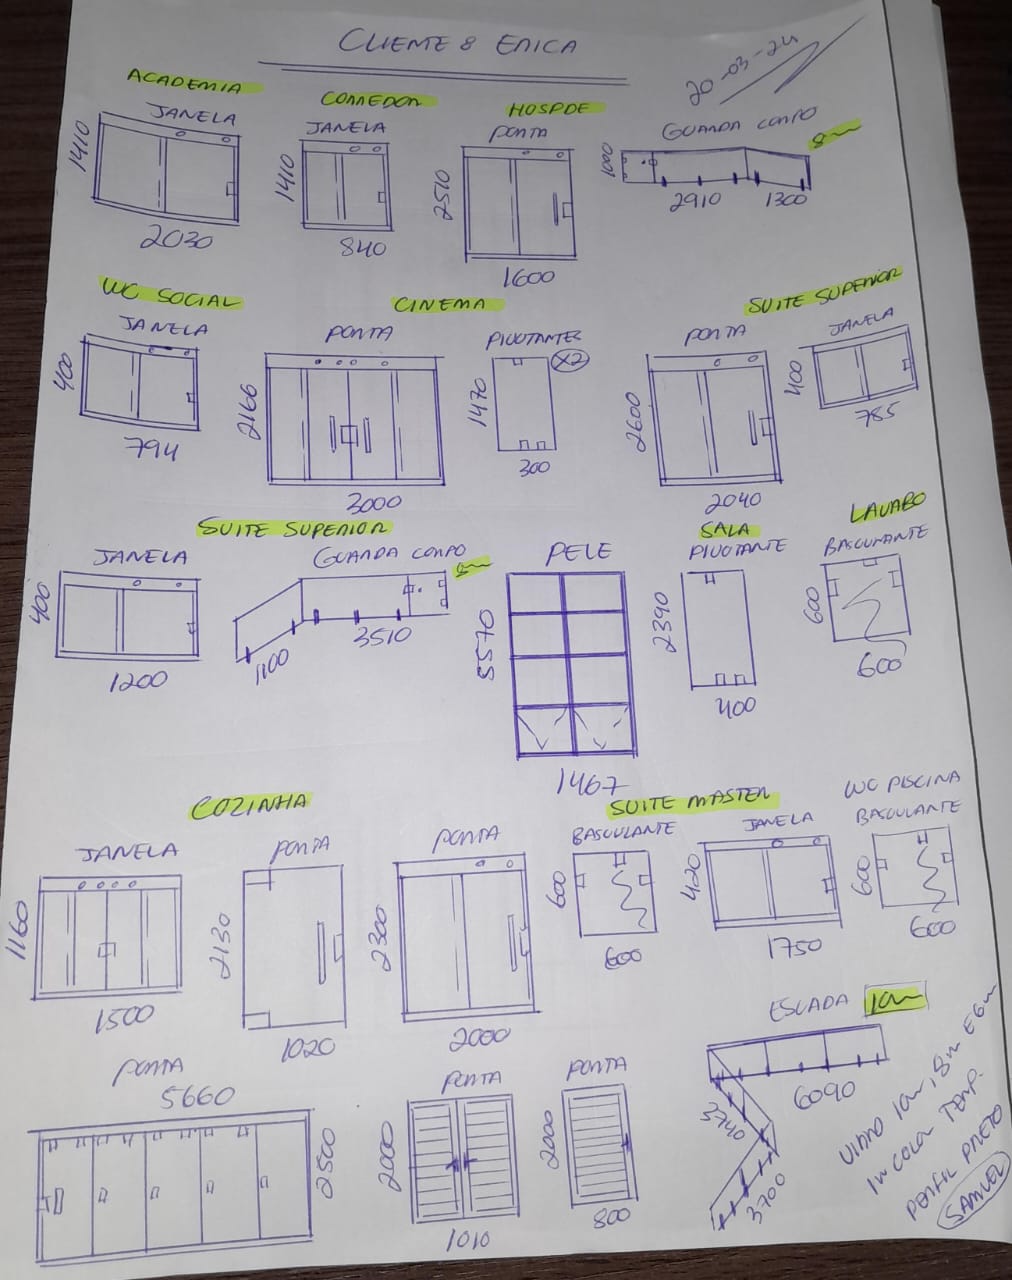 CLIENTE 8 ERICA
20-03-24
ACADEMIA
JANELA
1410
2030
COMEDOR
JANELA
1410
840
HOSPDE
PORTA
2510
1600
GUARDA CORPO
8m
1000
2910
1300
WC SOCIAL
JANELA
400
794
CINEMA
PORTA
2166
3000
PIVOTANTES
X2
1470
300
SUITE SUPERIOR
PORTA
2600
2040
JANELA
400
785
SUITE SUPERIOR
JANELA
400
1200
GUARDA CORPO
1100
3510
PELE
5570
1467
SALA
PIVOTANTE
2390
400
LAVABO
BASCULANTE
600
600
COZINHA
JANELA
1160
1500
PORTA
2130
1020
PORTA
2300
2000
SUITE MASTER
BASCULANTE
600
600
JANELA
420
1750
WC PISCINA
BASCULANTE
600
600
PORTA
5660
2500
PORTA
2000
1010
PORTA
2000
800
ESCADA 10m
6090
3740
3700
VIDRO 10m, 8m E 6m
INCOLOR TEMP.
PERFIL PRETO
SAMUEL